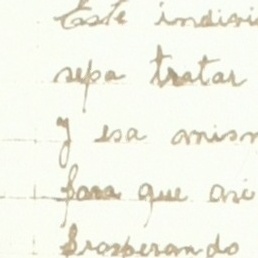 Este indivi
sepa tratar
y esa amism
para que asi
prosperando